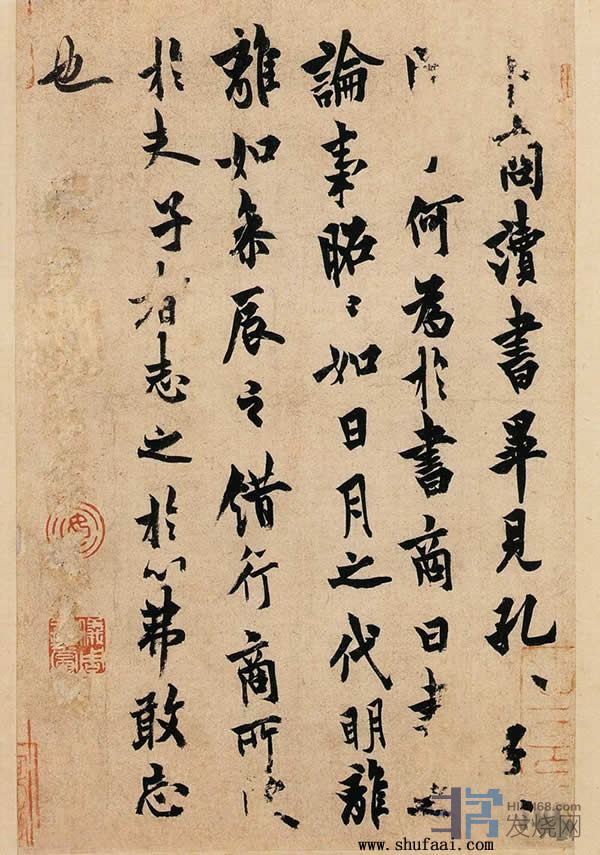 卜商讀書畢見孔〻子〻
何為於書商曰書之
論事昭〻如日月之代明離
離如參辰之錯行商所受
於夫子者志之於心弗敢忘
也
HIFI168.com
发烧网
www.shufaai.com